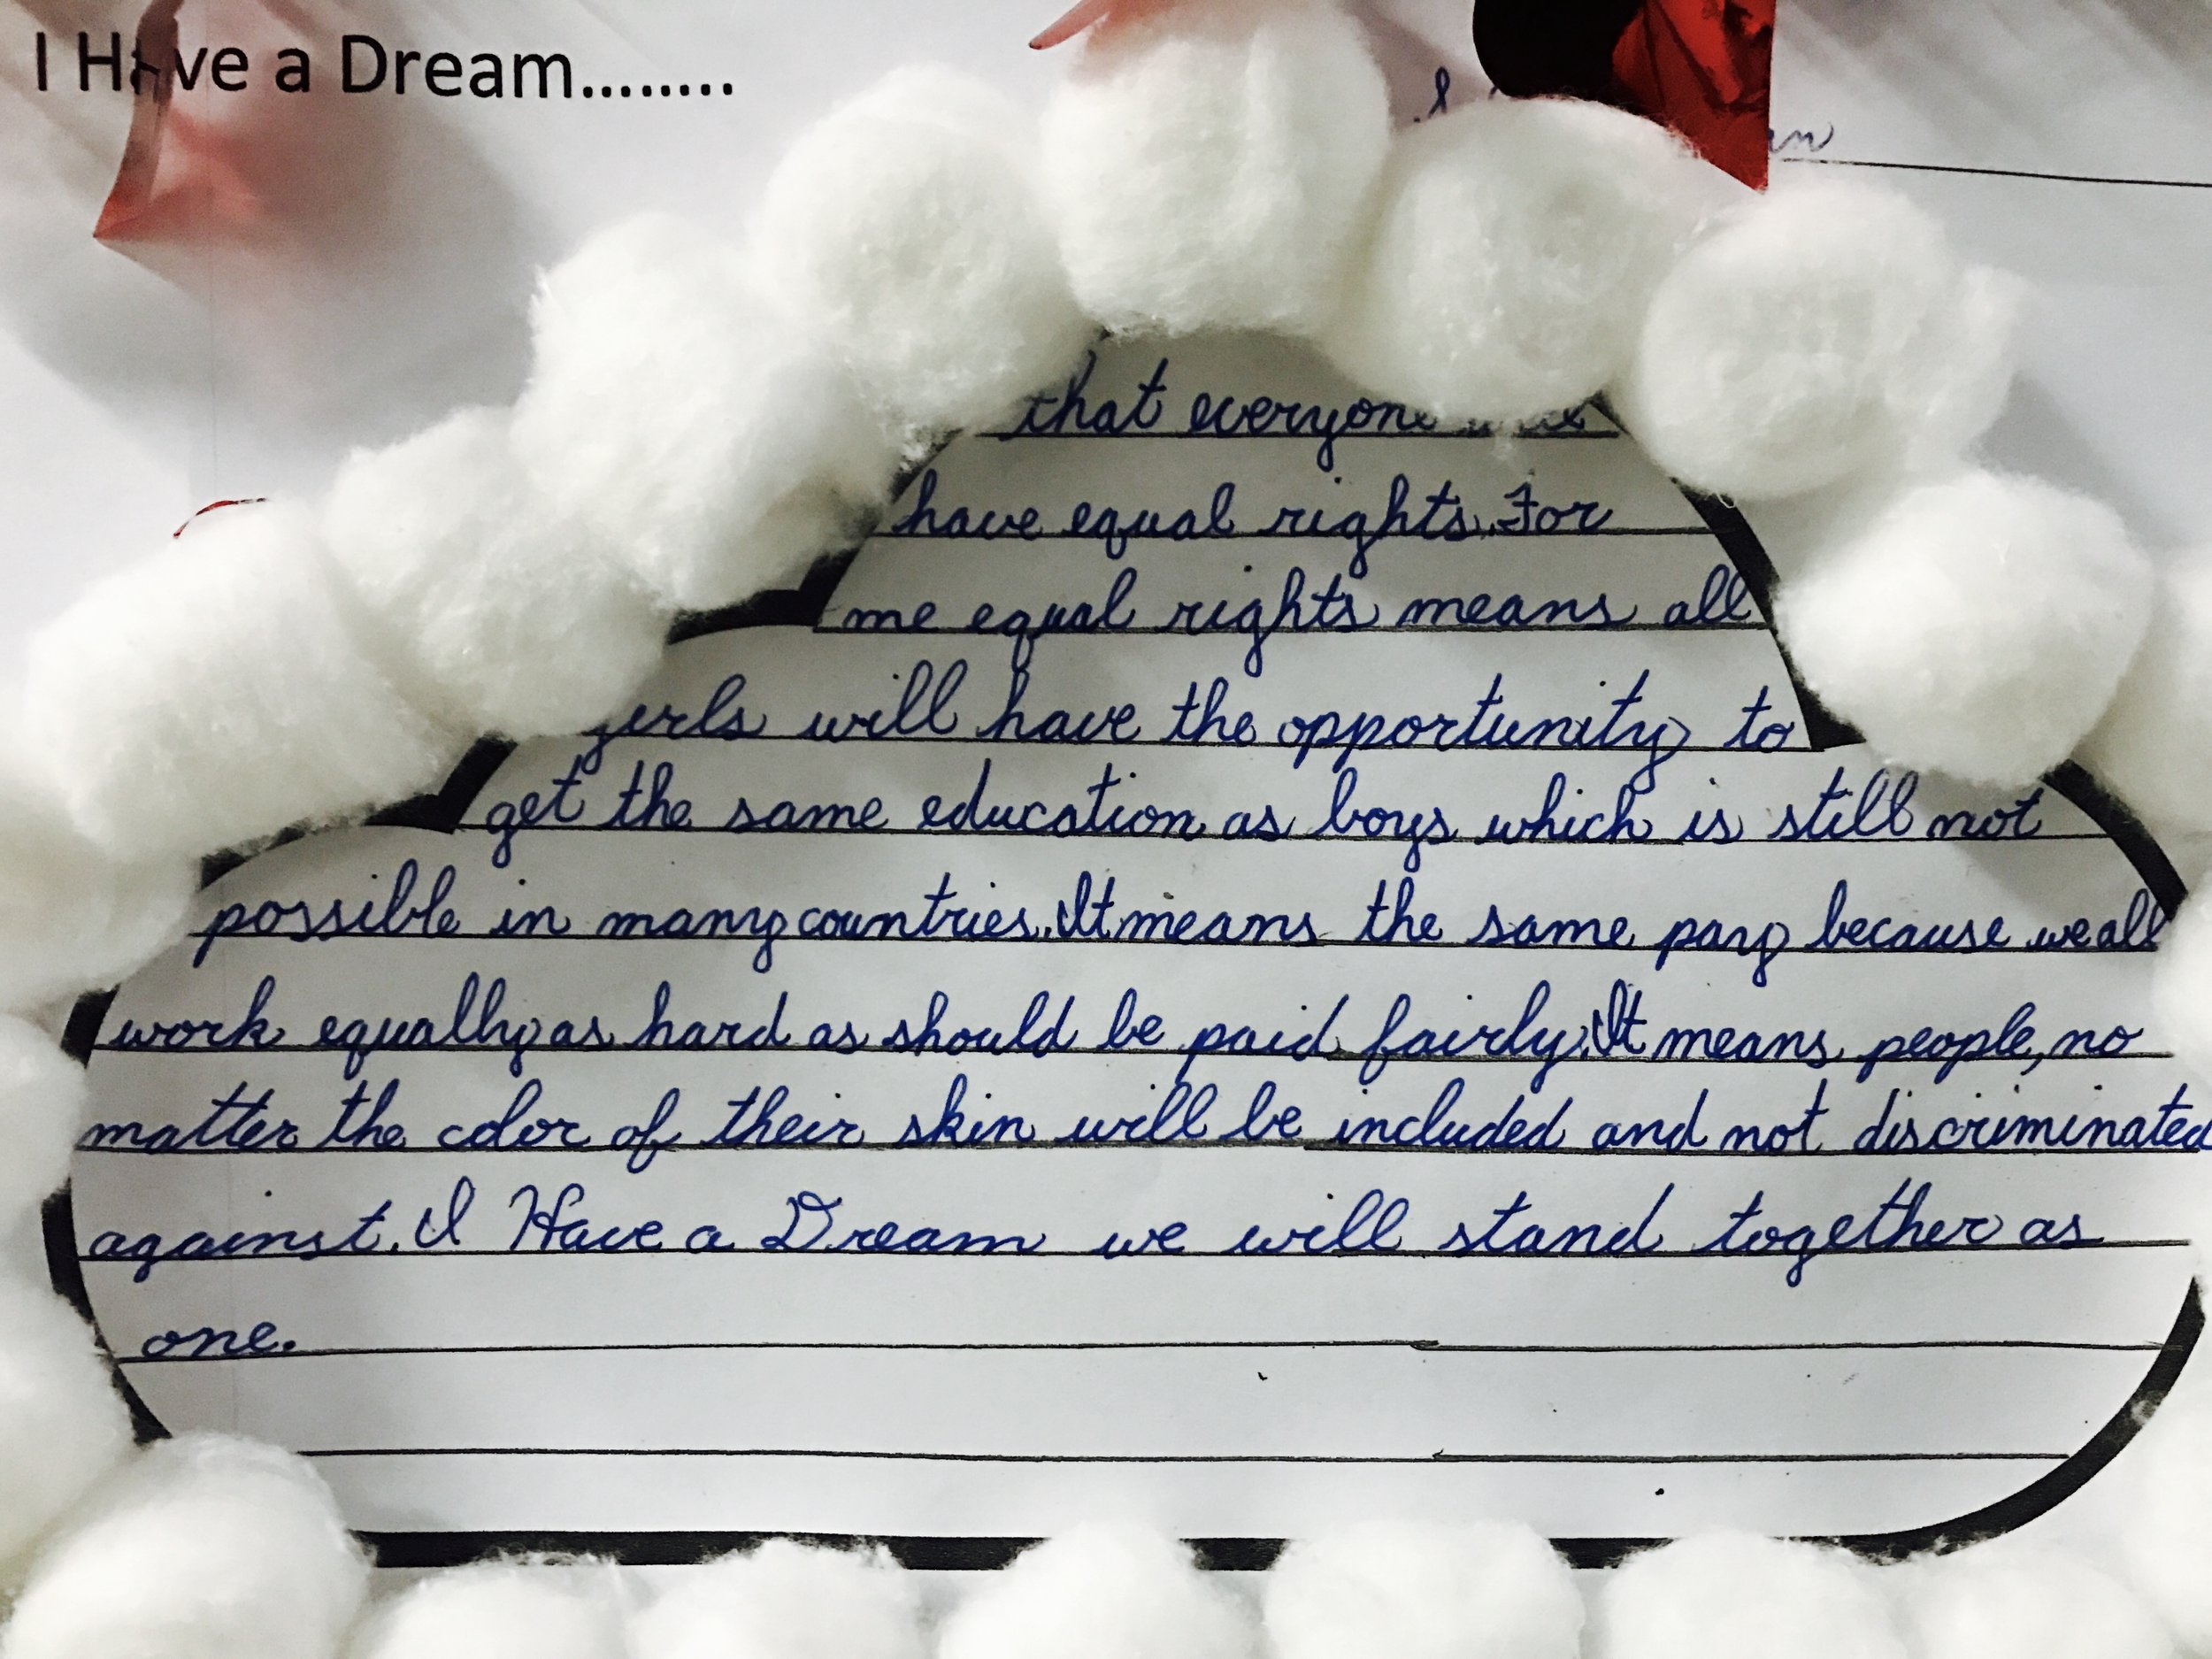 I Have a Dream........
that everyone
have equal rights. For
me equal rights means all
girls will have the opportunity to
get the same education as boys which is still not
possible in many countries. It means the same pay because we all
work equally as hard as should be paid fairly. It means people, no
matter the color of their skin will be included and not discriminated
against. I Have a Dream we will stand together as
one.